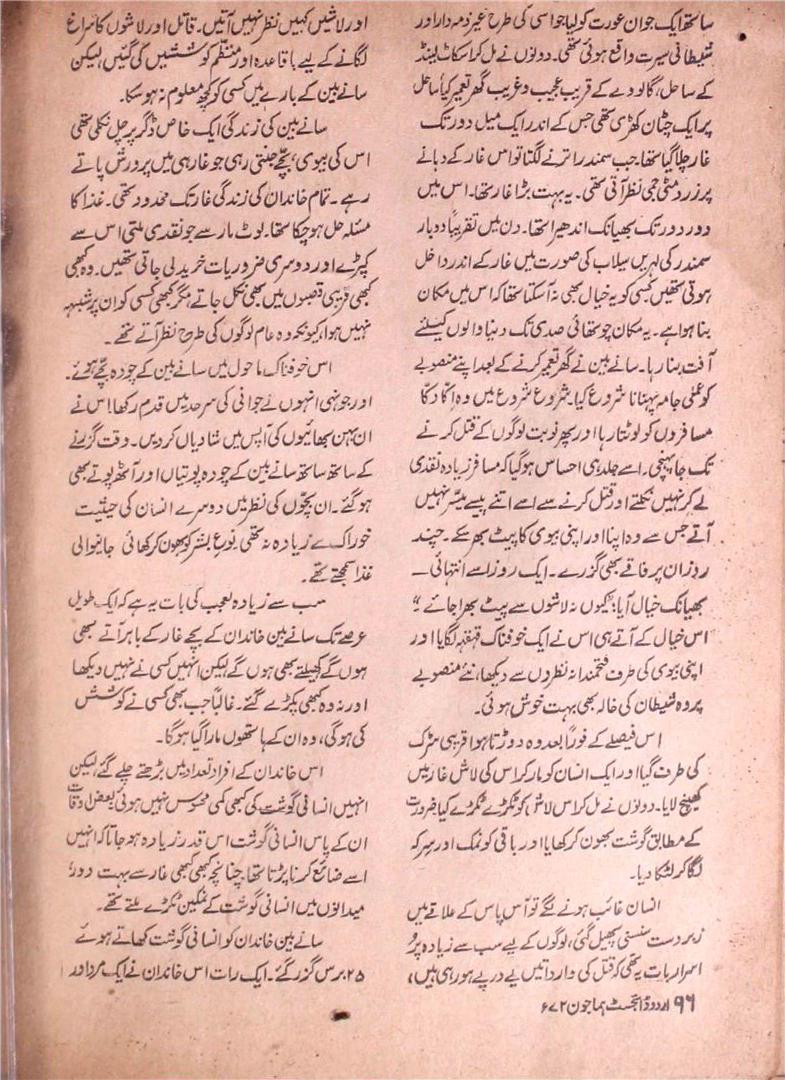 ساتھ ایک جوان عورت کو لیا جو اسی کی طرح غیر ذمہ دار اور
شیطانی سیرت واقع ہوئی تھی۔ دونوں نے مل کر اسکاٹ لینڈ
کے ساحل، گالووے کے قریب عجیب و غریب گھر تعمیر کیا، ساحل
پر ایک چٹان کھڑی تھی جس کے اندر ایک میل دور تک
غار چلا گیا تھا۔ جب سمندر اترنے لگتا تو اس غار کے دہانے
پر زرد مٹی جمی نظر آتی تھی۔ یہ بہت بڑا غار تھا۔ اس میں
دور دور تک بھیانک اندھیرا تھا۔ دن میں تقریباً دو بار
سمندر کی لہریں سیلاب کی صورت میں غار کے اندر داخل
ہوتی تھیں کسی کو یہ خیال بھی نہ آ سکتا تھا کہ اس میں مکان
بنا ہوا ہے۔ یہ مکان چوتھائی صدی تک دنیا والوں کیلئے
آفت بنا رہا۔ سانے بین نے گھر تعمیر کرنے کے بعد اپنے منصوبے
کو عملی جامہ پہنانا شروع کیا۔ شروع شروع میں وہ اِکّا دکّا
مسافروں کو لوٹتا رہا اور پھر نوبت لوگوں کے قتل کرنے
تک جا پہنچی۔ اسے جلد ہی احساس ہو گیا کہ مسافر زیادہ نقدی
لے کر نہیں نکلتے اور قتل کرنے سے اسے اتنے پیسے میسر نہیں
آتے جس سے وہ اپنا اور اپنی بیوی کا پیٹ بھر سکے۔ چند
روز ان پر فاقے بھی گزرے۔ ایک روز اسے انتہائی ـــ
بھیانک خیال آیا: "کیوں نہ لاشوں سے پیٹ بھرا جائے؟"
اس خیال کے آتے ہی اس نے ایک خوفناک قہقہہ لگایا اور
اپنی بیوی کی طرف فتحمندانہ نظروں سے دیکھا، نئے منصوبے
پر وہ شیطان کی خالہ بھی بہت خوش ہوئی۔
اس فیصلے کے فوراً بعد وہ دوڑتا ہوا قریبی سڑک
کی طرف گیا اور ایک انسان کو مار کر اس کی لاش غار میں
کھینچ لایا۔ دونوں نے مل کر اس لاش کو ٹکڑے ٹکڑے کیا ضرورت
کے مطابق گوشت بھون کر کھایا اور باقی کو نمک اور سرکہ
لگا کر لٹکا دیا۔
انسان غائب ہونے لگے تو آس پاس کے علاقے میں
زبردست سنسنی پھیل گئی، لوگوں کے لیے سب سے زیادہ پُر
اسرار بات یہ تھی کہ قتل کی وارداتیں پے در پے ہو رہی ہیں،
اور لاشیں کہیں نظر نہیں آتیں۔ قاتل اور لاشوں کا سراغ
لگانے کے لیے باقاعدہ اور منظّم کوششیں کی گئیں، لیکن
سانے بین کے بارے میں کسی کو کچھ معلوم نہ ہو سکا۔
سانے بین کی زندگی ایک خاص ڈگر پر چل نکلی تھی
اس کی بیوی، بچّے جنتی رہی جو غار ہی میں پرورش پاتے
رہے۔ تمام خاندان کی زندگی غار تک محدود تھی۔ غذا کا
مسئلہ حل ہو چکا تھا۔ لوٹ مار سے جو نقدی ملتی اس سے
کپڑے اور دوسری ضروریات خرید لی جاتی تھیں۔ وہ کبھی
کبھی قریبی قصبوں میں بھی نکل جاتے، مگر کبھی کسی کو ان پر شبہہ
نہیں ہوا، کیونکہ وہ عام لوگوں کی طرح نظر آتے تھے۔
اس خوفناک ماحول میں سانے بین کے چودہ بچّے ہوئے۔
اور جونہی انہوں نے جوانی کی سرحد میں قدم رکھا، اس نے
ان بہن بھائیوں کی آپس میں شادیاں کر دیں۔ وقت گزرنے
کے ساتھ ساتھ سانے بین کے چودہ پوتیاں اور آٹھ پوتے بھی
ہو گئے۔ ان بچّوں کی نظر میں دوسرے انسان کی حیثیت
خوراک سے زیادہ نہ تھی۔ نوعِ بشر کو بھون کر کھائی جانیوالی
غذا سمجھتے تھے۔
سب سے زیادہ تعجب کی بات یہ ہے کہ ایک طویل
عرصے تک سانے بین خاندان کے بچے غار کے باہر آتے بھی
ہوں گے کھیلتے بھی ہوں گے لیکن انہیں کسی نے نہیں دیکھا
اور نہ وہ کبھی پکڑے گئے۔ غالباً جب بھی کسی نے کوشش
کی ہوگی، وہ ان کے ہاتھوں مارا گیا ہوگا۔
اس خاندان کے افراد تعداد میں بڑھتے چلے گئے، لیکن
انہیں انسانی گوشت کی کبھی کمی محسوس نہیں ہوئی، بعض اوقات
ان کے پاس انسانی گوشت اس قدر زیادہ ہو جاتا کہ انہیں
اسے ضائع کرنا پڑتا تھا، چنانچہ کبھی کبھی غار سے بہت دور
میدانوں میں انسانی گوشت کے نمکین ٹکڑے ملتے تھے۔
سانے بین خاندان کو انسانی گوشت کھاتے ہوئے
۲۵ برس گزر گئے۔ ایک رات اس خاندان نے ایک مرد اور
۹۶ اردو ڈائجسٹ ہما جون ۶۷۲